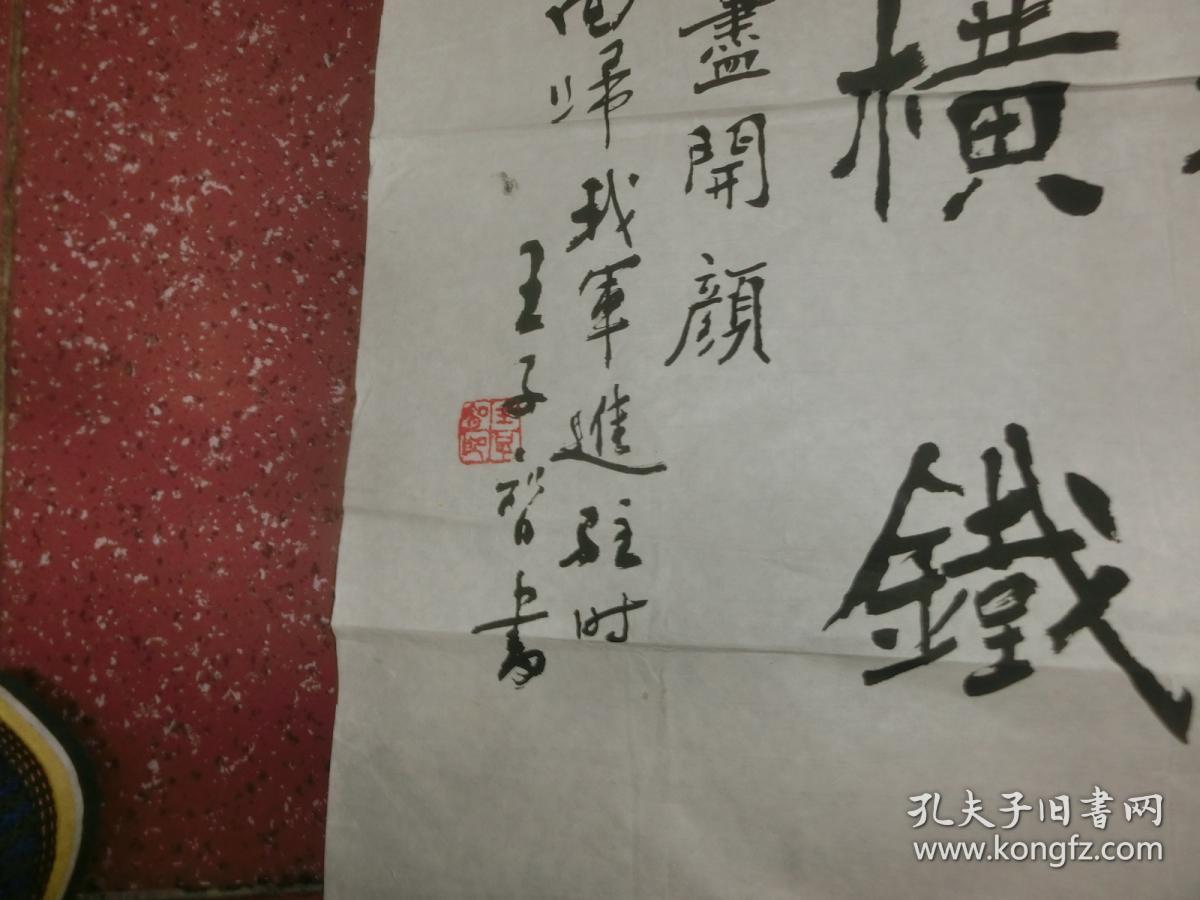 橫鐵
盡開顏
歸我軍進駐时
王子智書
孔夫子旧书网
www.kongfz.com